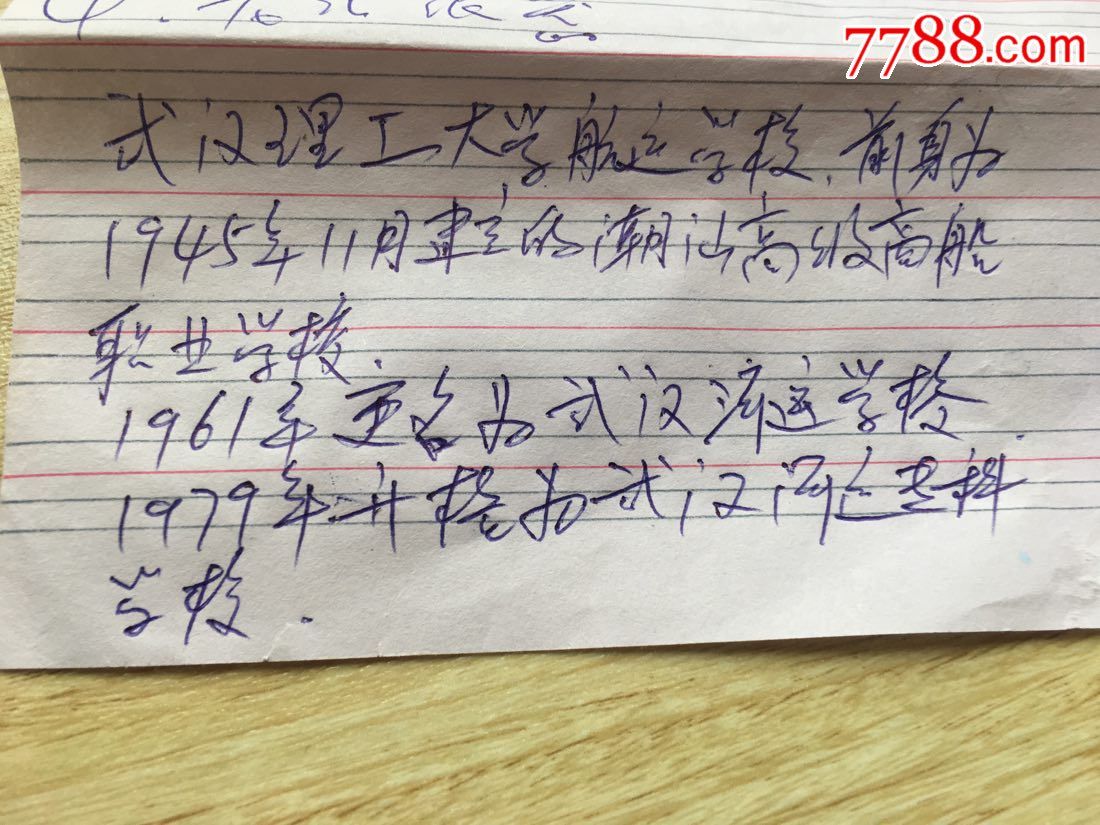 7788.com
武汉理工大学航运学校.前身为
1945年11月建立的潮汕高级商船
职业学校.
1961年更名为武汉河运学校.
1979年升格为武汉河运专科
学校.